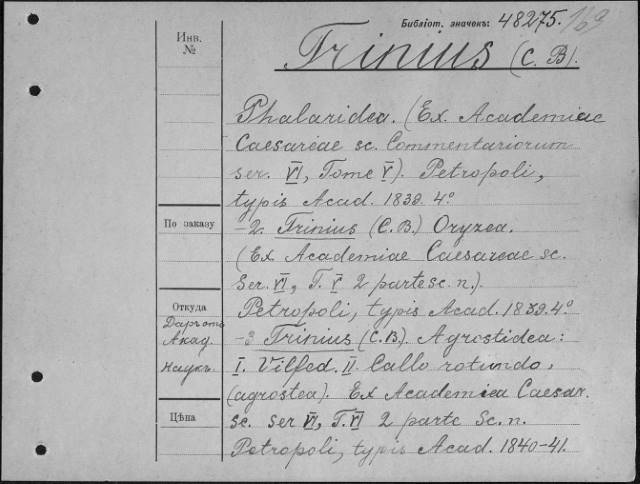 Библіот. значекъ: 48275. 169
Инв. №
Trinius (C. B).
Phalaridea. (Ex Academiae
Caesareae sc. Commentariorum
ser. VI, Tome V). Petropoli,
typis Acad. 1839. 4º
По заказу
-2. Trinius (C. B.) Oryzea.
(Ex Academiae Caesareae sc.
Ser. VI, T. V 2 parte sc. n.).
Откуда
Petropoli, typis Acad. 1839. 4º
Даръ отъ
Акад.
Наукъ.
-3 Trinius (C. B.). Agrostidea:
I. Vilfed. II. Callo rotundo,
(agrostea). Ex Academica Caesar.
Цѣна
sc. ser VI, T. VI 2 parte Sc. n.
Petropoli, typis Acad. 1840-41.